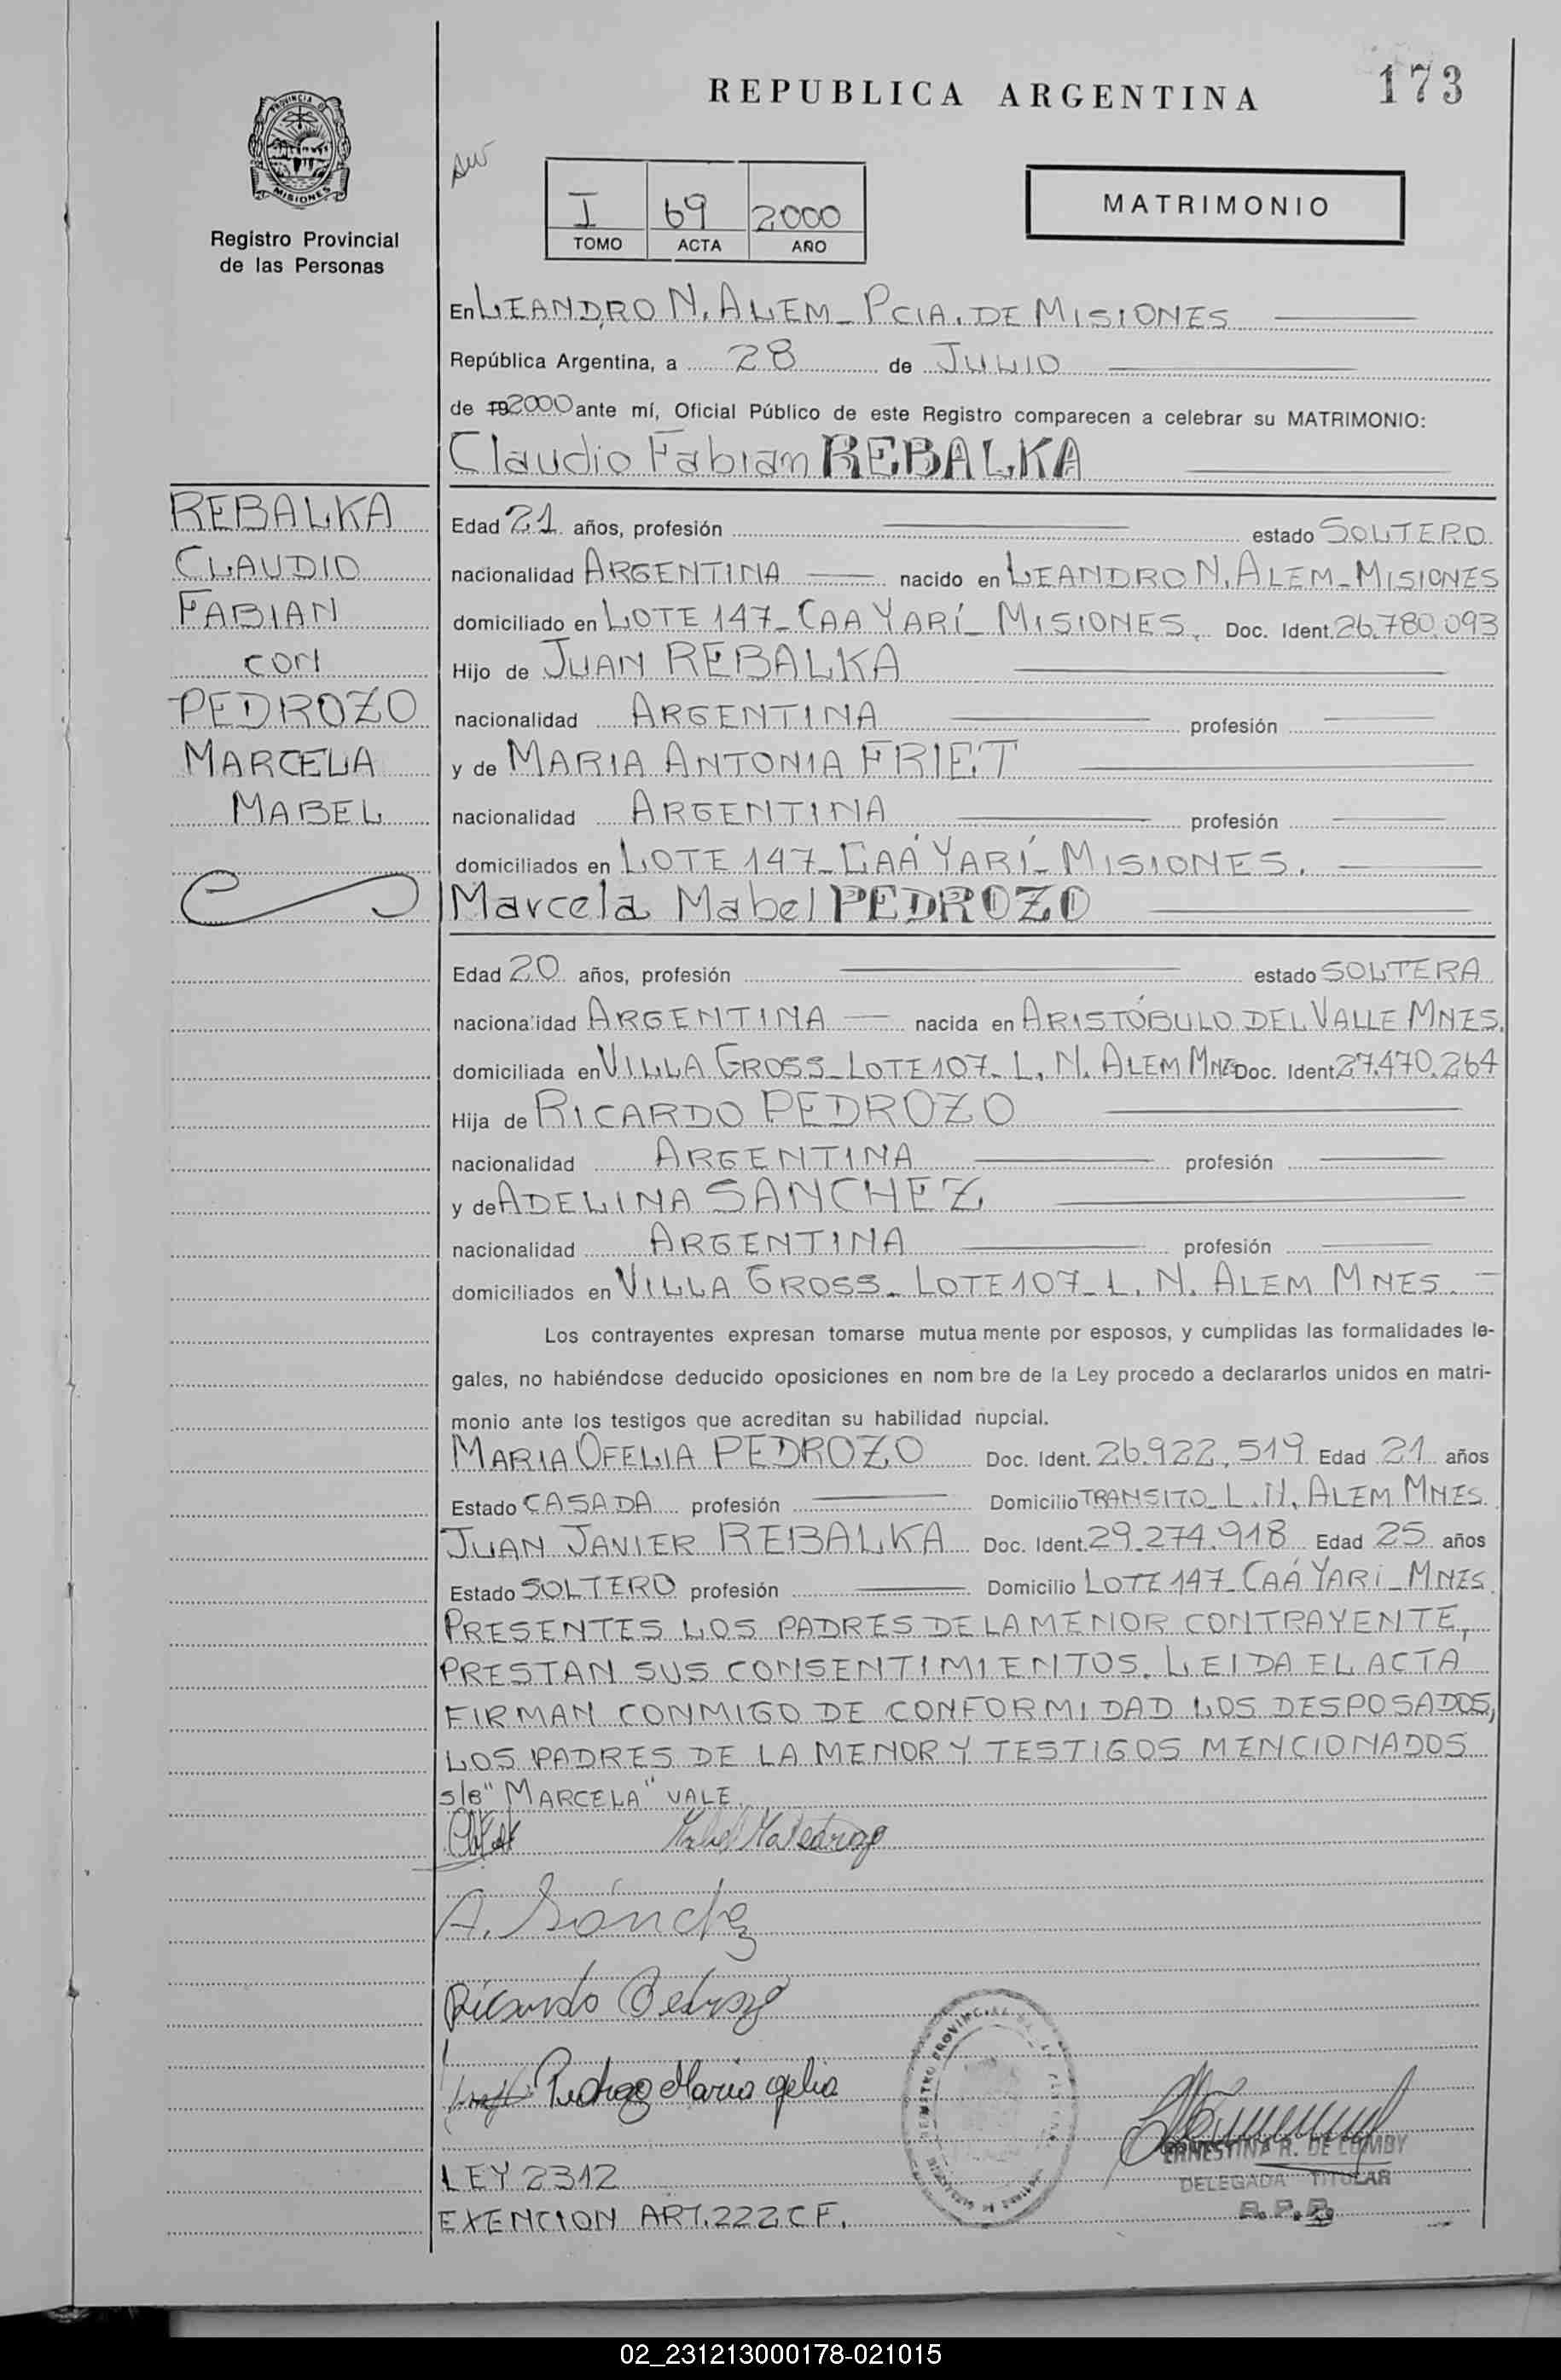 173
REPUBLICA ARGENTINA
PROVINCIA DE MISIONES
Registro Provincial
de las Personas
I 69 2000
TOMO ACTA AÑO
MATRIMONIO
En LEANDRO N. ALEM - PCIA. DE MISIONES
República Argentina, a 28 de JULIO
de 19 2000 ante mí, Oficial Público de este Registro comparecen a celebrar su MATRIMONIO:
Claudio Fabian REBALKA
REBALKA
CLAUDIO
FABIAN
CON
PEDROZO
MARCELA
MABEL
Edad 21 años, profesión estado SOLTERO
nacionalidad ARGENTINA nacido en LEANDRO N. ALEM - MISIONES
domiciliado en LOTE 147 - CAA YARÍ - MISIONES. Doc. Ident. 26.780.093
Hijo de JUAN REBALKA
nacionalidad ARGENTINA profesión
y de MARIA ANTONIA FRIET
nacionalidad ARGENTINA profesión
domiciliados en LOTE 147 - CAÁ YARÍ - MISIONES.
Marcela Mabel PEDROZO
Edad 20 años, profesión estado SOLTERA
nacionalidad ARGENTINA nacida en ARISTÓBULO DEL VALLE MNES.
domiciliada en VILLA GROSS - LOTE 107 - L. N. ALEM MNES Doc. Ident. 27.470.264
Hija de RICARDO PEDROZO
nacionalidad ARGENTINA profesión
y de ADELINA SANCHEZ
nacionalidad ARGENTINA profesión
domiciliados en VILLA GROSS - LOTE 107 - L. N. ALEM MNES. -
Los contrayentes expresan tomarse mutua mente por esposos, y cumplidas las formalidades le-
gales, no habiéndose deducido oposiciones en nom bre de la Ley procedo a declararlos unidos en matri-
monio ante los testigos que acreditan su habilidad nupcial.
MARIA OFELIA PEDROZO Doc. Ident. 26.922.519 Edad 21 años
Estado CASADA profesión Domicilio TRANSITO - L. N. ALEM MNES.
JUAN JAVIER REBALKA Doc. Ident. 29.274.918 Edad 25 años
Estado SOLTERO profesión Domicilio LOTE 147 - CAÁ YARÍ - MNES.
PRESENTES LOS PADRES DE LA MENOR CONTRAYENTE,
PRESTAN SUS CONSENTIMIENTOS. LEIDA EL ACTA
FIRMAN CONMIGO DE CONFORMIDAD LOS DESPOSADOS,
LOS PADRES DE LA MENOR Y TESTIGOS MENCIONADOS
s/e "MARCELA" VALE.
A. Sánchez
Ricardo Pedrozo
Pedrozo Maria ofelia
REGISTRO PROVINCIAL
ERNESTINA R. DE LOMBY
DELEGADA TITULAR
R. P. P.
LEY 2312
EXENCION ART. 222 C F.
02_231213000178-021015